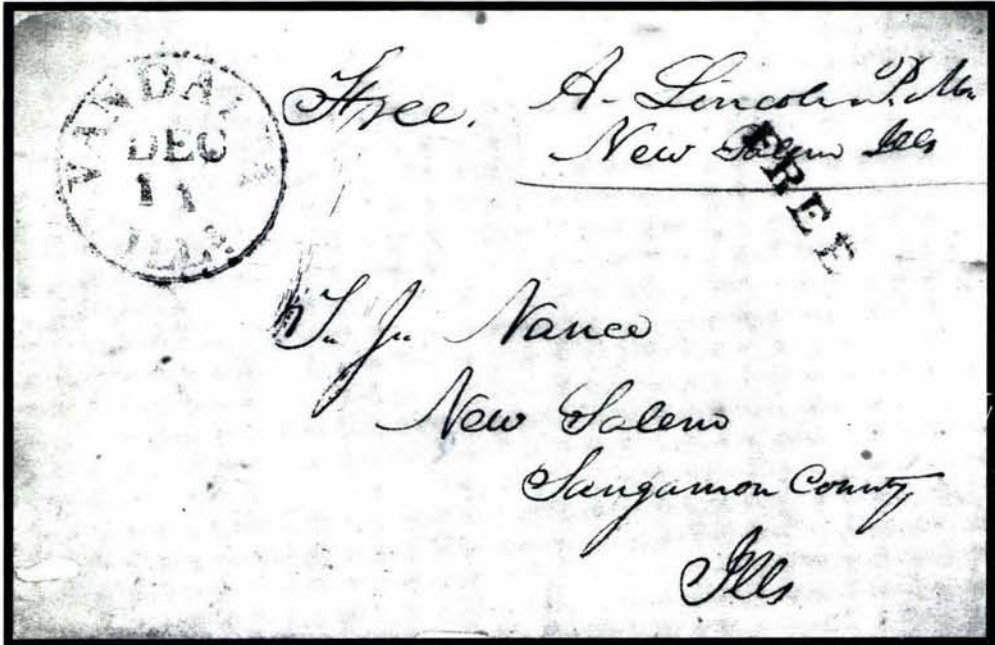 VANDAL
DEC
11
ILLS.
Free. A. Lincoln P.M.
New Salem Ills
FREE
T. J. Nance
New Salem
Sangamon County
Ills